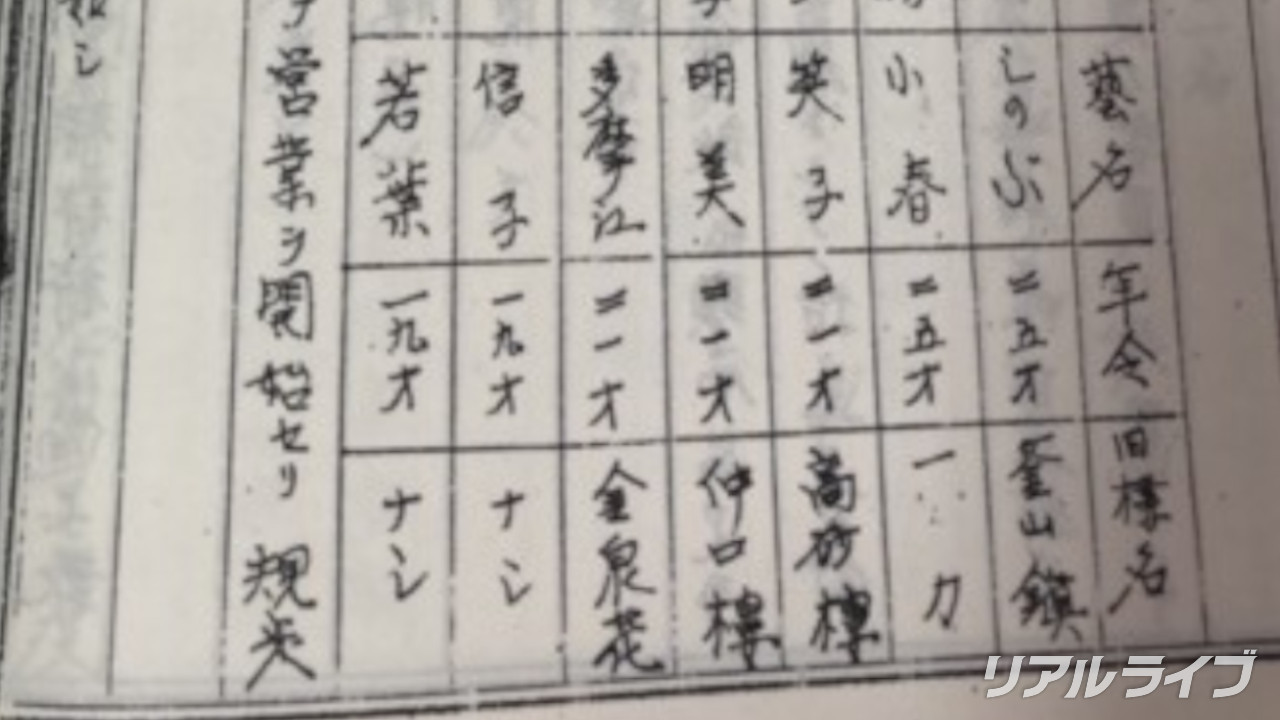 藝名 年令 旧樓名
しのぶ 二五才 釜山鎮
小春 二五才 一力
笑子 二一才 高砂樓
明美 二一才 仲口樓
多摩江 二一才 金泉花
信子 一九才 ナシ
若葉 一九才 ナシ
テ営業ヲ開始セリ 規
シ
リアルライブ